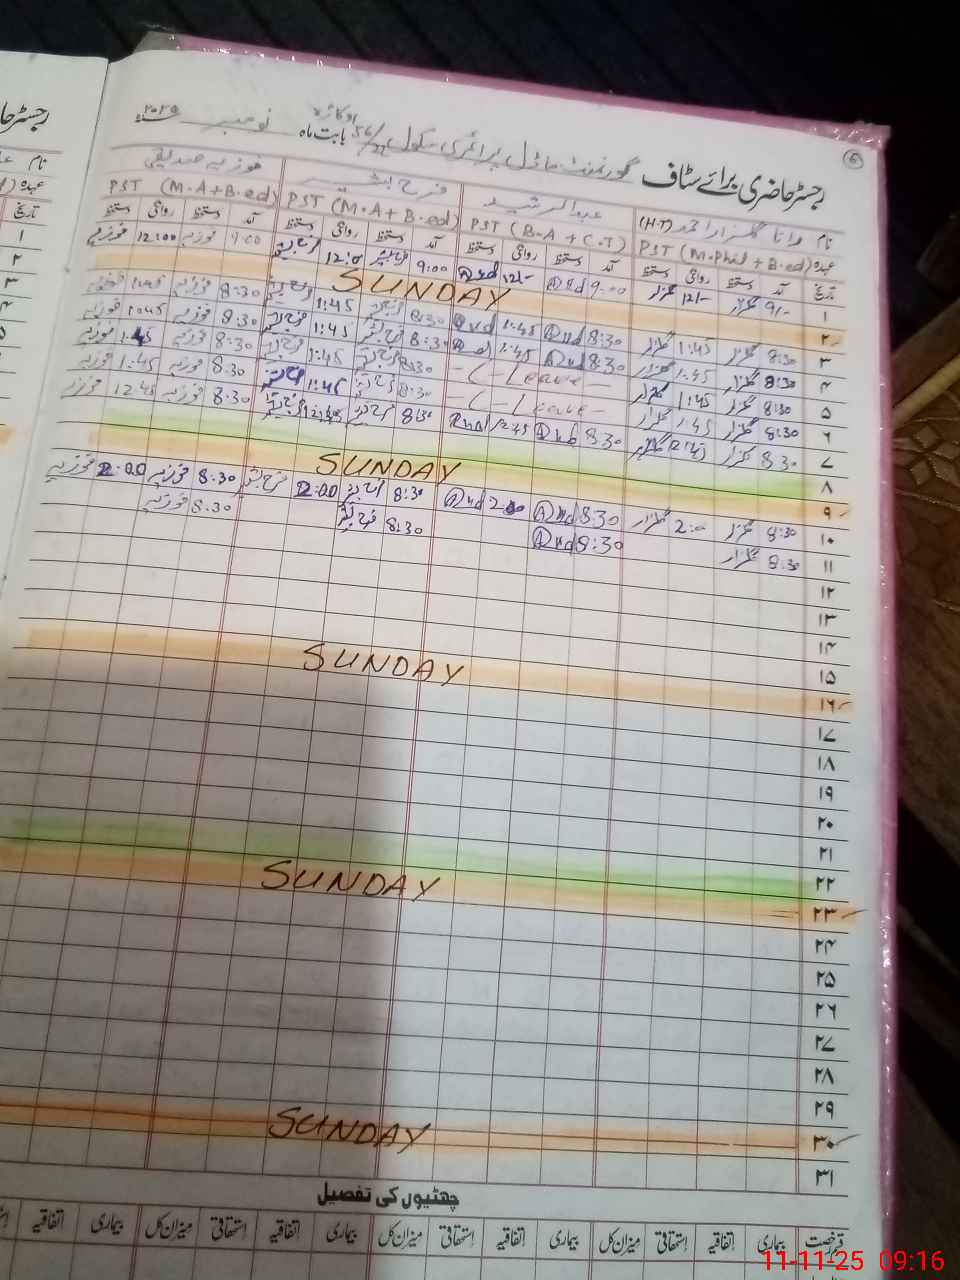 رجسٹر حاضری برائے سٹاف گورنمنٹ ماڈل پرائمری سکول 56/ اوکاڑہ بابت ماہ نومبر ۲۰۲۵
نام رانا گلزار احمد (H.T) عبدالرشید فرح بشیر فوزیہ صدیقی
عہدہ PST (M.Phil + B.ed) PST (B.A + C.T) PST (M.A + B.ed) PST (M.A + B.ed)
تاریخ آمد دستخط روانگی دستخط آمد دستخط روانگی دستخط آمد دستخط روانگی دستخط آمد دستخط روانگی دستخط
۱ 9/- گلزار 12/- گلزار 9:00 12/- 9:00 فرح بشیر 12:0 فرح بشیر 9:00 فوزیہ 12:00 فوزیہ
۲ SUNDAY
۳ 8:30 گلزار 1:45 گلزار 8:30 1:45 8:30 فرح بشیر 1:45 فرح بشیر 8:30 فوزیہ 1:45 فوزیہ
۴ 8:30 گلزار 1:45 گلزار 8:30 1:45 8:30 فرح بشیر 1:45 فرح بشیر 8:30 فوزیہ 1:45 فوزیہ
۵ 8:30 گلزار 1:45 گلزار - C - Leave - 8:30 فرح بشیر 1:45 فرح بشیر 8:30 فوزیہ 1:45 فوزیہ
۶ 8:30 گلزار 1:45 گلزار - C - Leave - 8:30 فرح بشیر 1:45 فرح بشیر 8:30 فوزیہ 1:45 فوزیہ
۷ 8:30 گلزار 12:45 گلزار 8:30 12:45 8:30 فرح بشیر 12:45 فرح بشیر 8:30 فوزیہ 12:45 فوزیہ
۸
۹ SUNDAY
۱۰ 8:30 گلزار 2:0 گلزار 8:30 2:00 8:30 فرح بشیر 2:00 فرح بشیر 8:30 فوزیہ 2:00 فوزیہ
۱۱ 8:30 گلزار 8:30 8:30 فرح بشیر 8:30 فوزیہ
۱۲
۱۳
۱۴
۱۵
۱۶ SUNDAY
۱۷
۱۸
۱۹
۲۰
۲۱
۲۲
۲۳ SUNDAY
۲۴
۲۵
۲۶
۲۷
۲۸
۲۹
۳۰ SUNDAY
۳۱
چھٹیوں کی تفصیل
قسم رخصت بیماری اتفاقیہ استحقاقی میزان کل بیماری اتفاقیہ استحقاقی میزان کل بیماری اتفاقیہ استحقاقی میزان کل بیماری اتفاقیہ
رجسٹر حاضری
نام
عہدہ
تاریخ
۱
۲
۳
۴
۵
11-11-25 09:16